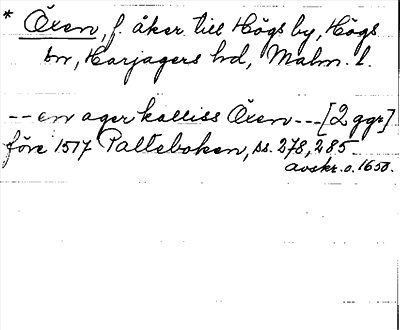 * Öxen, f. åker till Högs by, Högs
sn, Harjagers hd, Malm. l.
-- en ager kalliss Öxen --- [2 ggr]
före 1517 Palteboken, ss. 278, 285
avskr. o. 1650.